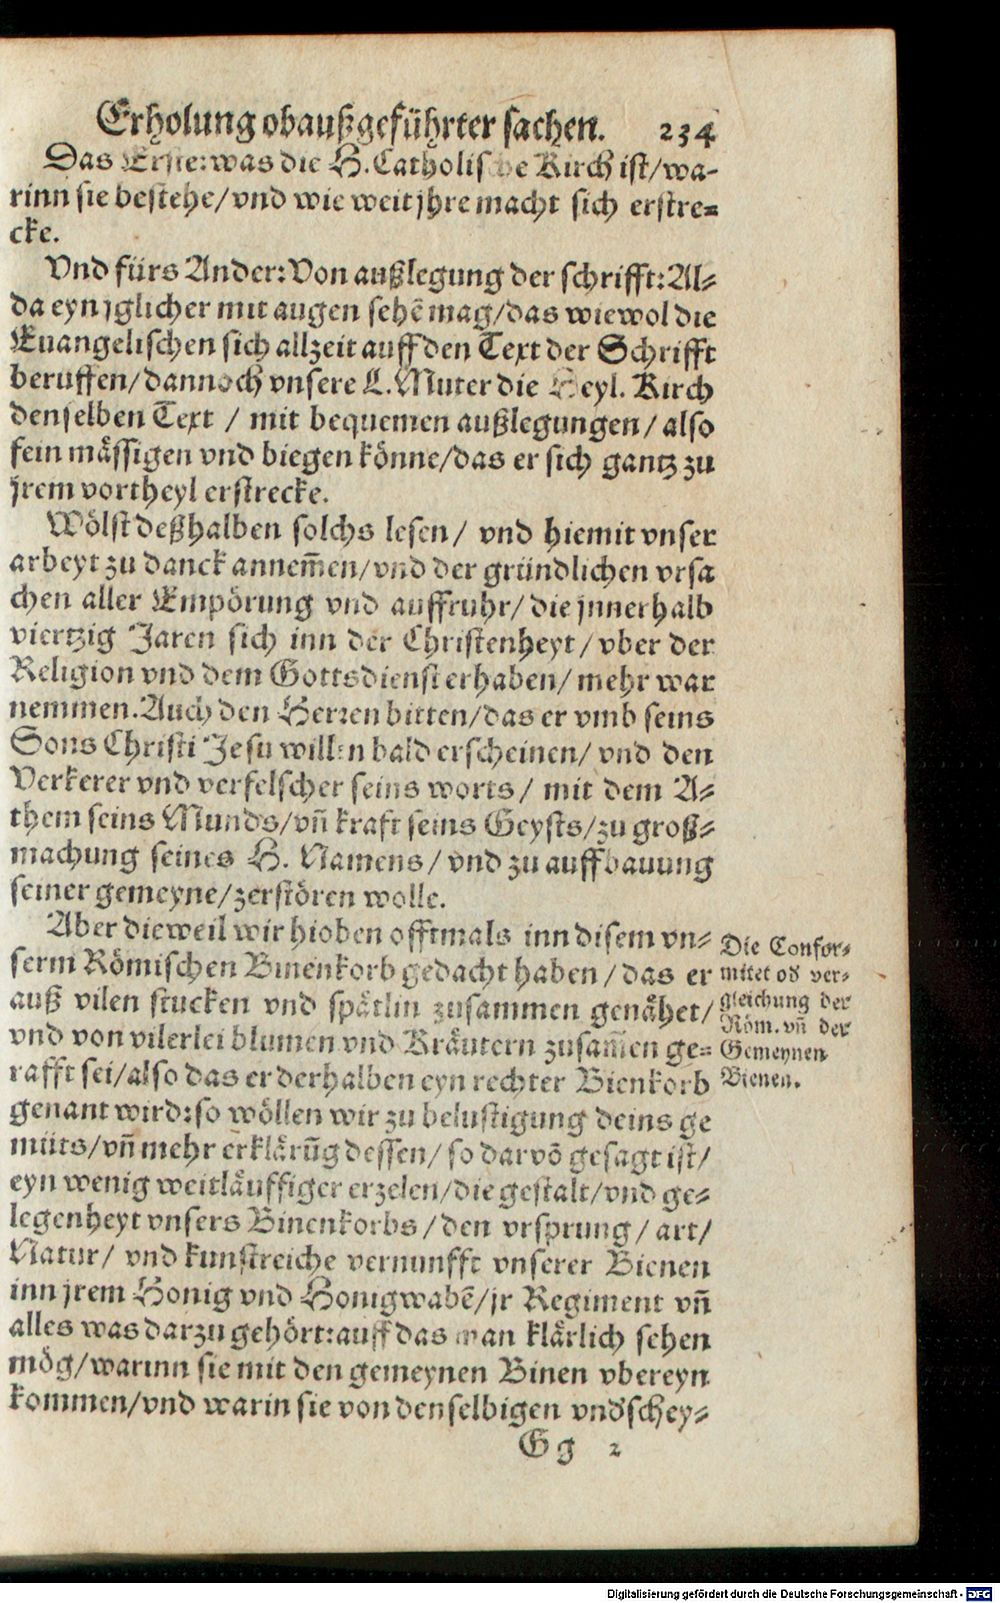 Erholung obaußgeführter sachen. 234
Das Erste: was die H. Catholische Kirch ist/wa-
rinn sie bestehe/vnd wie weit jhre macht sich erstre-
cke.
Vnd fürs Ander: Von außlegung der schrifft: Al-
da eyn jglicher mit augen sehē mag/das wiewol die
Euangelischen sich allzeit auff den Text der Schrifft
beruffen/dannoch vnsere L. Muter die Heyl. Kirch
denselben Text / mit bequemen außlegungen / also
fein mässigen vnd biegen könne/das er sich gantz zu
jrem vortheyl erstrecke.
Wölst deßhalben solchs lesen / vnd hiemit vnser
arbeyt zu danck annem̄en/vnd der gründlichen vrsa
chen aller Empörung vnd auffruhr/ die jnnerhalb
viertzig Jaren sich inn der Christenheyt / vber der
Religion vnd dem Gottsdienst erhaben/ mehr war
nemmen. Auch den Herren bitten/das er vmb seins
Sons Christi Jesu willen bald erscheinen/ vnd den
Verkerer vnd verfelscher seins worts / mit dem A-
them seins Munds/vn̄ kraft seins Geysts/zu groß-
machung seines H. Namens / vnd zu auffbauung
seiner gemeyne/zerstören wolle.
Aber dieweil wir hioben offtmals inn disem vn-
serm Römischen Binenkorb gedacht haben / das er
auß vilen stucken vnd spätlin zusammen genähet/
vnd von vilerlei blumen vnd Kräutern zusam̄en ge-
rafft sei/also das er derhalben eyn rechter Bienkorb
genant wird: so wöllen wir zu belustigung deins ge
müts/vn̄ mehr erklärūg dessen/ so darvō gesagt ist/
eyn wenig weitläuffiger erzelen/die gestalt/vnd ge-
legenheyt vnsers Binenkorbs / den vrsprung / art/
Natur/ vnd kunstreiche vernunfft vnserer Bienen
inn jrem Honig vnd Honigwabē/jr Regiment vn̄
alles was darzu gehört: auff das man klärlich sehen
mög/warinn sie mit den gemeynen Binen vbereyn
kommen/vnd warin sie von denselbigen vnd'schey-
Gg 2
Die Confor-
mitet od' ver-
gleichung der
Röm. vn̄ der
Gemeynen
Bienen.
Digitalisierung gefördert durch die Deutsche Forschungsgemeinschaft - DFG